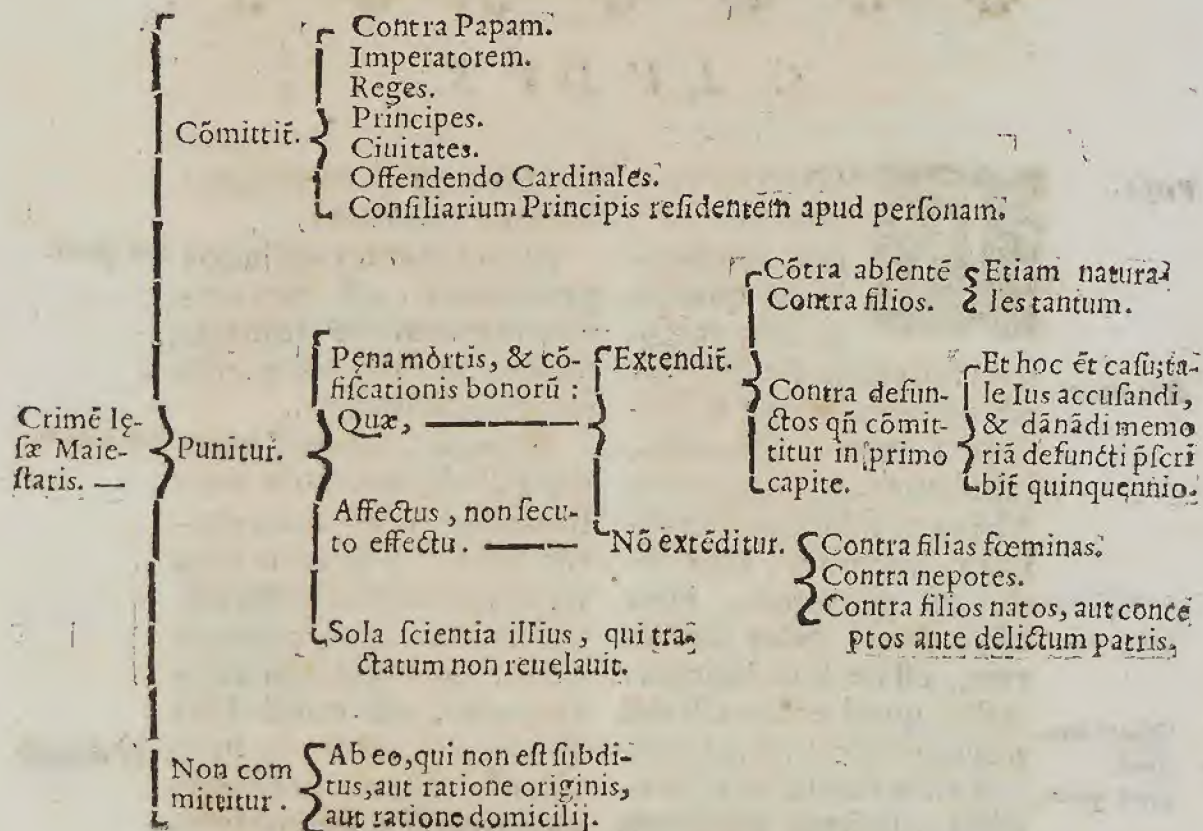 Crimẽ lę-
ſæ Maie-
ſtatis. —
Cõmittit̃.
Contra Papam.
Imperatorem.
Reges.
Principes.
Ciuitates.
Offendendo Cardinales.
Conſiliarium Principis reſidentem apud perſonam.
Punitur.
Pęna mòrtis, & cõ-
fiſcationis bonorũ :
Quæ, ———
Extendit̃.
Cõtra abſentẽ
Contra filios.
Etiam natura
les tantum.
Contra defun-
ctos qñ cõmit-
titur in primo
capite.
Et hoc ẽt caſu; ta-
le Ius accuſandi,
& dãnãdi memo
riã defuncti p̃ſcri
bit̃ quinquęnnio.
Nõ extẽditur.
Contra filias fœminas.
Contra nepotes.
Contra filios natos, aut conce
ptos ante delictum patris,
Affectus, non ſecu-
to effectu. ———
Sola ſcientia illius, qui tra-
ctatum non reuęlauit.
Non com
mittitur.
Ab eo, qui non eſt ſubdi-
tus, aut ratione originis,
aut ratione domicilij.